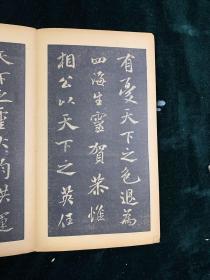 有憂天下之色退為
四海生靈賀恭惟
相公以天下之英任
天下之重大向其運